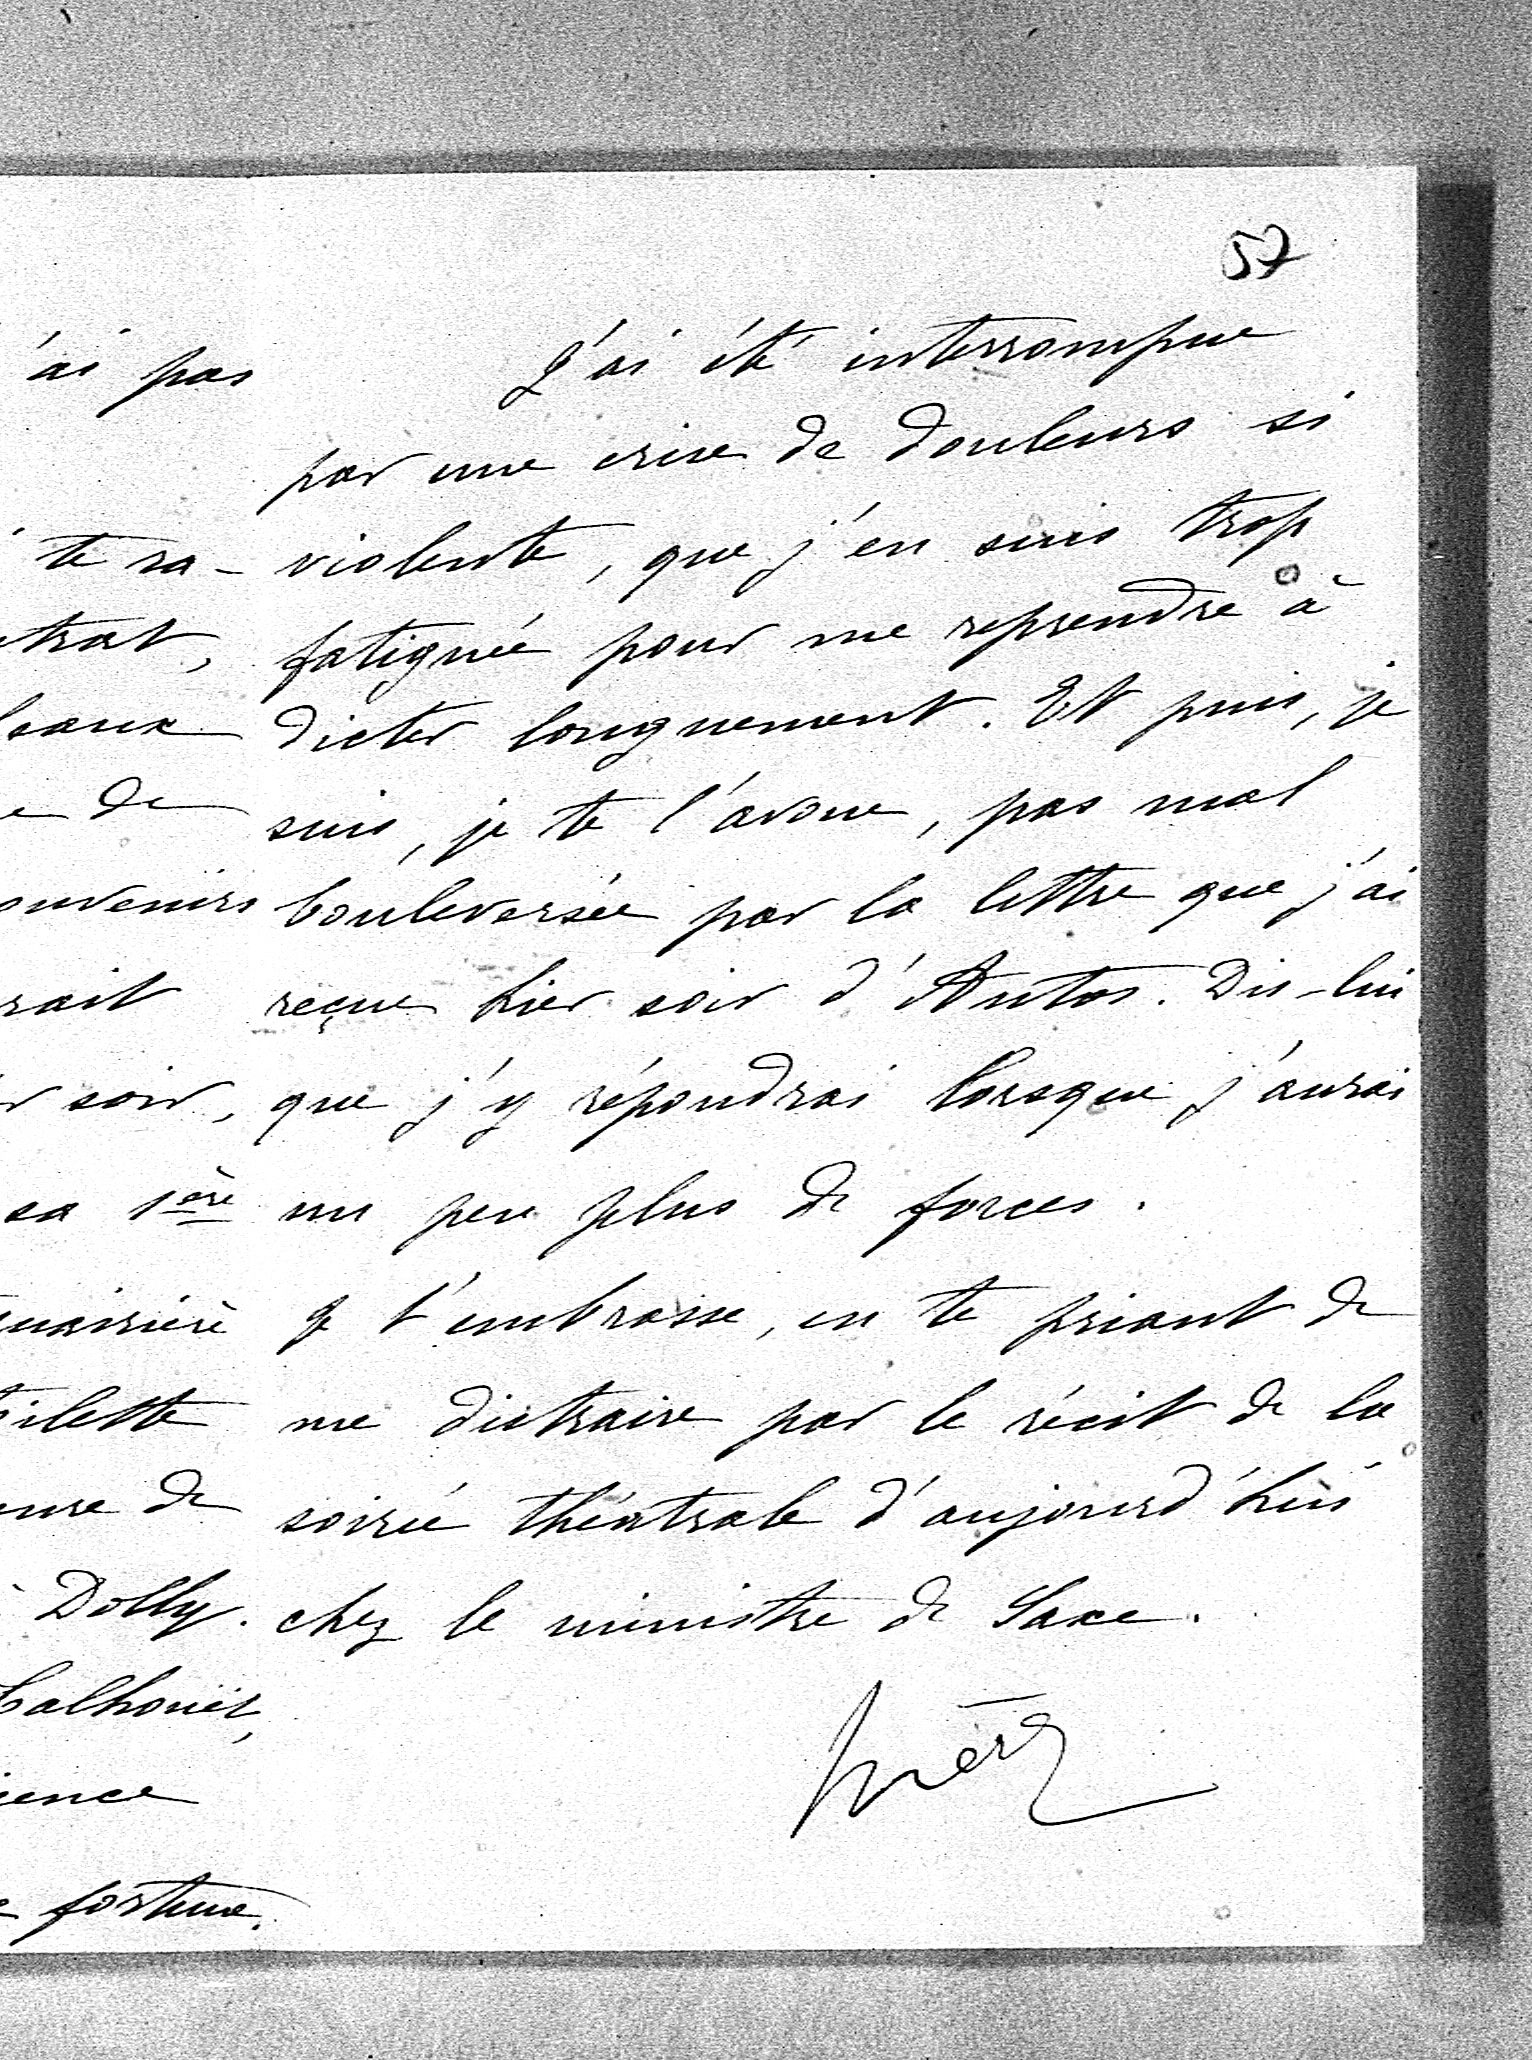 57
'ai pas
te ra-
trat,
eaux
e de
ouvenirs
rait
r soir,
sa 1ère
ilette
de
à Dolly.
ience
fortune.
J'ai été interrompue
par une crise de douleurs si
violente, que j'en suis trop
fatiguée pour me reprendre à
dicter longuement. Et puis, je
suis, je te l'avoue, pas mal
bouleversée par la lettre que j'ai
reçue hier soir d'Antos. Dis-lui
que j'y répondrai lorsque j'aurai
un peu plus de forces.
Je t'embrasse, en te priant de
me distraire par le récit de la
soirée théâtrale d'aujourd'hui
chez le ministre de Saxe.